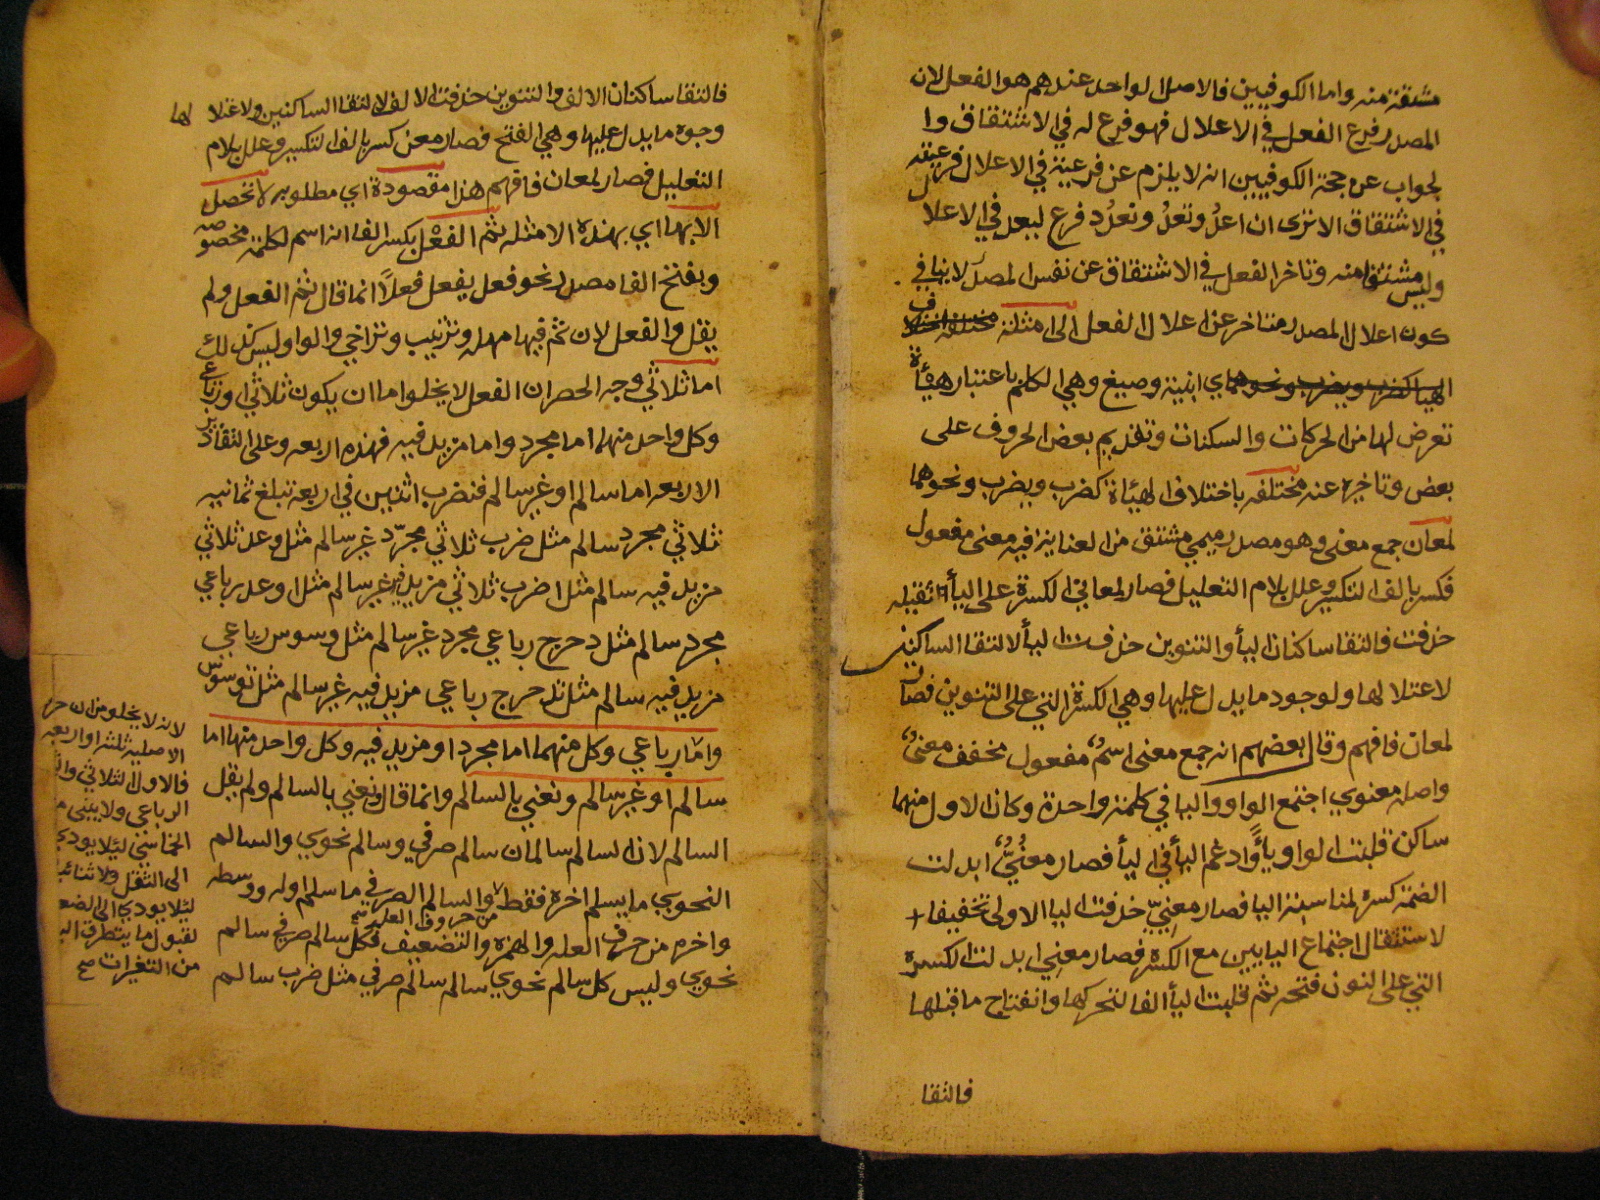 مشتقة منه واما الكوفيين فالاصل الواحد عندهم هو الفعل لان
المصدر فرع الفعل في الاعلال فهو فرع له في الاشتقاق وا
لجواب عن حجة الكوفيين انه لا يلزم عن فرعية في الاعلال فرعيته
في الاشتقاق الا ترى ان اعد وتعد ونعد فرع ليعد في الاعلال
وليس مشتقا منه وتاخر الفعل في الاشتقاق عن نفس المصدر لا ينافي
كون اعلال المصدر متاخر عن اعلال الفعل الى امثلة مختلفة اختلاف
الهيأ كضرب ويضرب ونحوهما اي ابنية وصيغ وهي الكلم باعتبار هيأة
تعرض لها من الحركات والسكنات وتقديم بعض الحروف على
بعض وتاخيره عنه مختلفه باختلاف الهيأة كضرب ويضرب ونحوهما
لمعان جمع معنى وهو مصدر ميمي مشتق من العناية فيه معنى مفعول
فكسر بالف التكسير وعلل بلام التعليل فصار لمعاني الكسرة على اليأ ثقيله
حذفت فالتقا ساكنان اليأ والتنوين حذفت اليأ لالتقا الساكنين
لاعتلالها ولوجود ما يدل عليها وهي الكسرة التي على التنوين فصار
لمعان فافهم وقال بعضهم انه جمع معنى اسم مفعول مخفف معنيٌ
واصله معنوي اجتمع الواو واليا في كلمة واحدة وكان الاول منهما
ساكن قلبت الواو يأً وادغم اليأ في اليأ فصار معنُيٌّ ابدلت
الضمة كسرة لمناسبة اليا فصار معنِيّ حذفت اليا الاولى تخفيفا
لاستثقال اجتماع اليايين مع الكسرة فصار معنِي ابدلت الكسرة
التي على النون فتحه ثم قلبت اليأ الفا لتحركها وانفتاح ما قبلها
فالتقا
فالتقا ساكنان الالف والتنوين حذفت الالف لالتقا الساكنين ولاعتلا لها
وجود ما يدل عليها وهي الفتح فصار معنً كسر بالف التكسير وعلل بلام
التعليل فصار لمعان فافهم هذا مقصودة اي مطلوبه لا تحصل
الا بها اي بهذه الامثله ثم الفعل بكسر الفا انه اسم لكلمة مخصوصه
وبفتح الفا مصدر نحو فعل يفعل فعلاً انما قال ثم الفعل ولم
يقل والفعل لان ثم فيها مهله وترتيب وتراخي والواو ليس كذلك
اما ثلاثي وجه الحصر ان الفعل لا يخلوا اما ان يكون ثلاثي او رباعي
وكل واحد منهما اما مجرد واما مزيد فيه فهذه اربعه وعلى التقادير
الاربعه اما سالم او غير سالم فنضرب اثنين في اربعه تبلغ ثمانيه
ثلاثي مجرد سالم مثل ضرب ثلاثي مجرّد غير سالم مثل وعد ثلاثي
مزيد فيه سالم مثل اضرب ثلاثي مزيد فيه غير سالم مثل اوعد رباعي
مجرد سالم مثل دحرج رباعي مجرد غير سالم مثل وسوس رباعي
مزيد فيه سالم مثل تدحرج رباعي مزيد فيه غير سالم مثل توسوس
وامّا رباعي وكل منهما اما مجرد او مزيد فيه وكل واحد منها اما
سالم او غير سالم ونعني بالسالم وانما قال ونعني بالسالم ولم يقل
السالم لان السالم سالمان سالم صرفي وسالم نحوي والسالم
النحوي ما يسلم اخره فقط والسالم الصرفي ما سلم اوله ووسطه
واخره من حرف العله والهمزه والتضعيف فكل سالم صرفي سالم
من حروف العله صح
نحوي وليس كل سالم نحوي سالم سالم صرفي مثل ضرب سالم
لانه لا يخلو من ان حر
الاصلية ثلثه او اربعه
فالاول الثلاثي وال
الرباعي ولا يبنى م
الخماسي ليلا يودي
الى الثقل ولا ثنائيا
ليلا يودي الى الضع
لقبول ما يتطرق اليه
من التغيرات صح